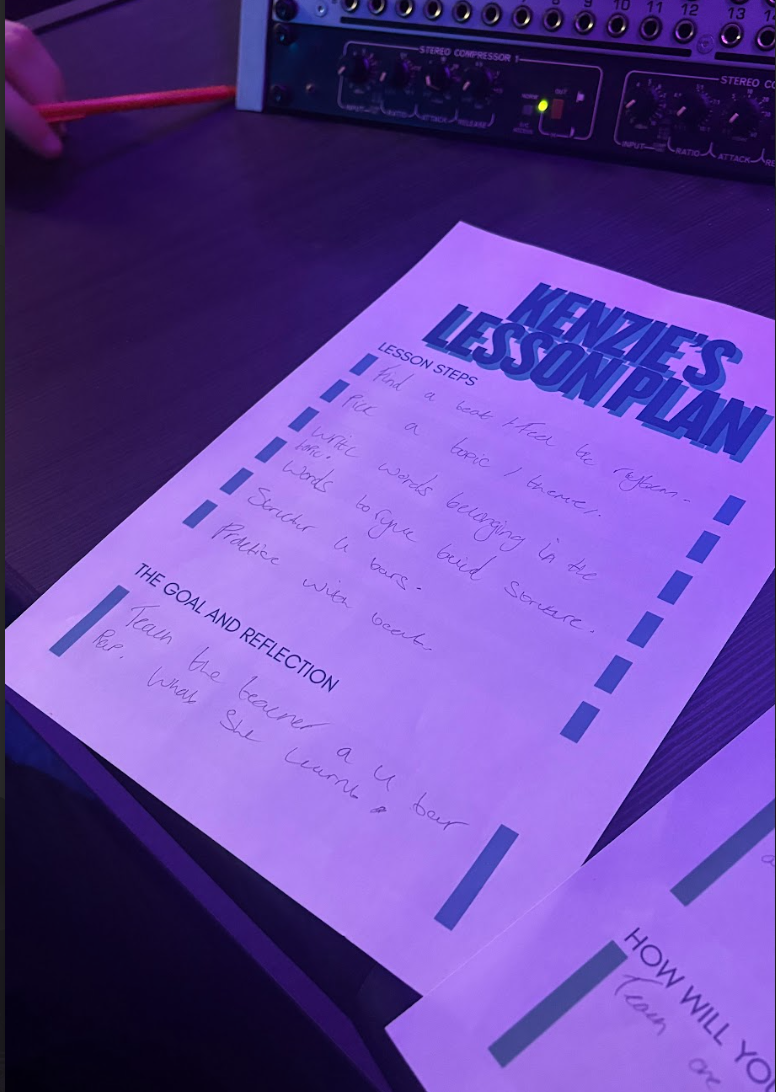 9 10 11 12 13
STEREO COMPRESSOR 1
OUT
INPUT RATIO ATTACK RELEASE
STEREO CO
INPUT RATIO ATTACK RE
KENZIE'S
LESSON PLAN
LESSON STEPS
Find a beat & feel the
Pick a topic / theme.
Write words belonging in the
topic.
Words to build structure.
4 bars.
Practice with beat.
THE GOAL AND REFLECTION
Teach the teacher a 4 bar
Rap. What She Learnt
HOW WILL YO
Teach